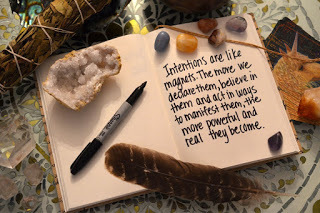 Intentions are like
magnets. The more we
declare them, believe in
them and act in ways
to manifest them, the
more powerful and
real they become.
Sharpie